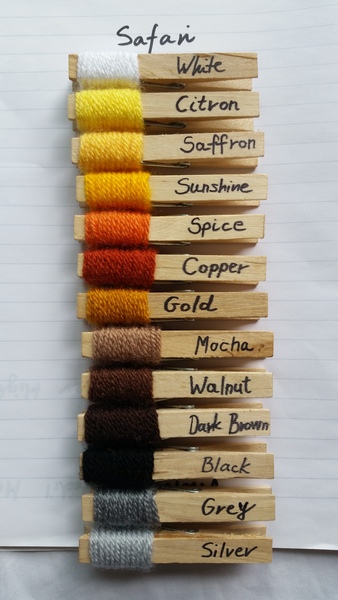 Safari
White
Citron
Saffron
Sunshine
Spice
Copper
Gold
Mocha
Walnut
Dark Brown
Black
Grey
Silver